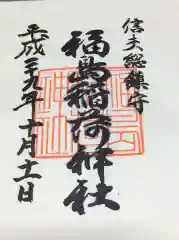 信夫総鎮守
福島稲荷神社
平成二九年十月十一日